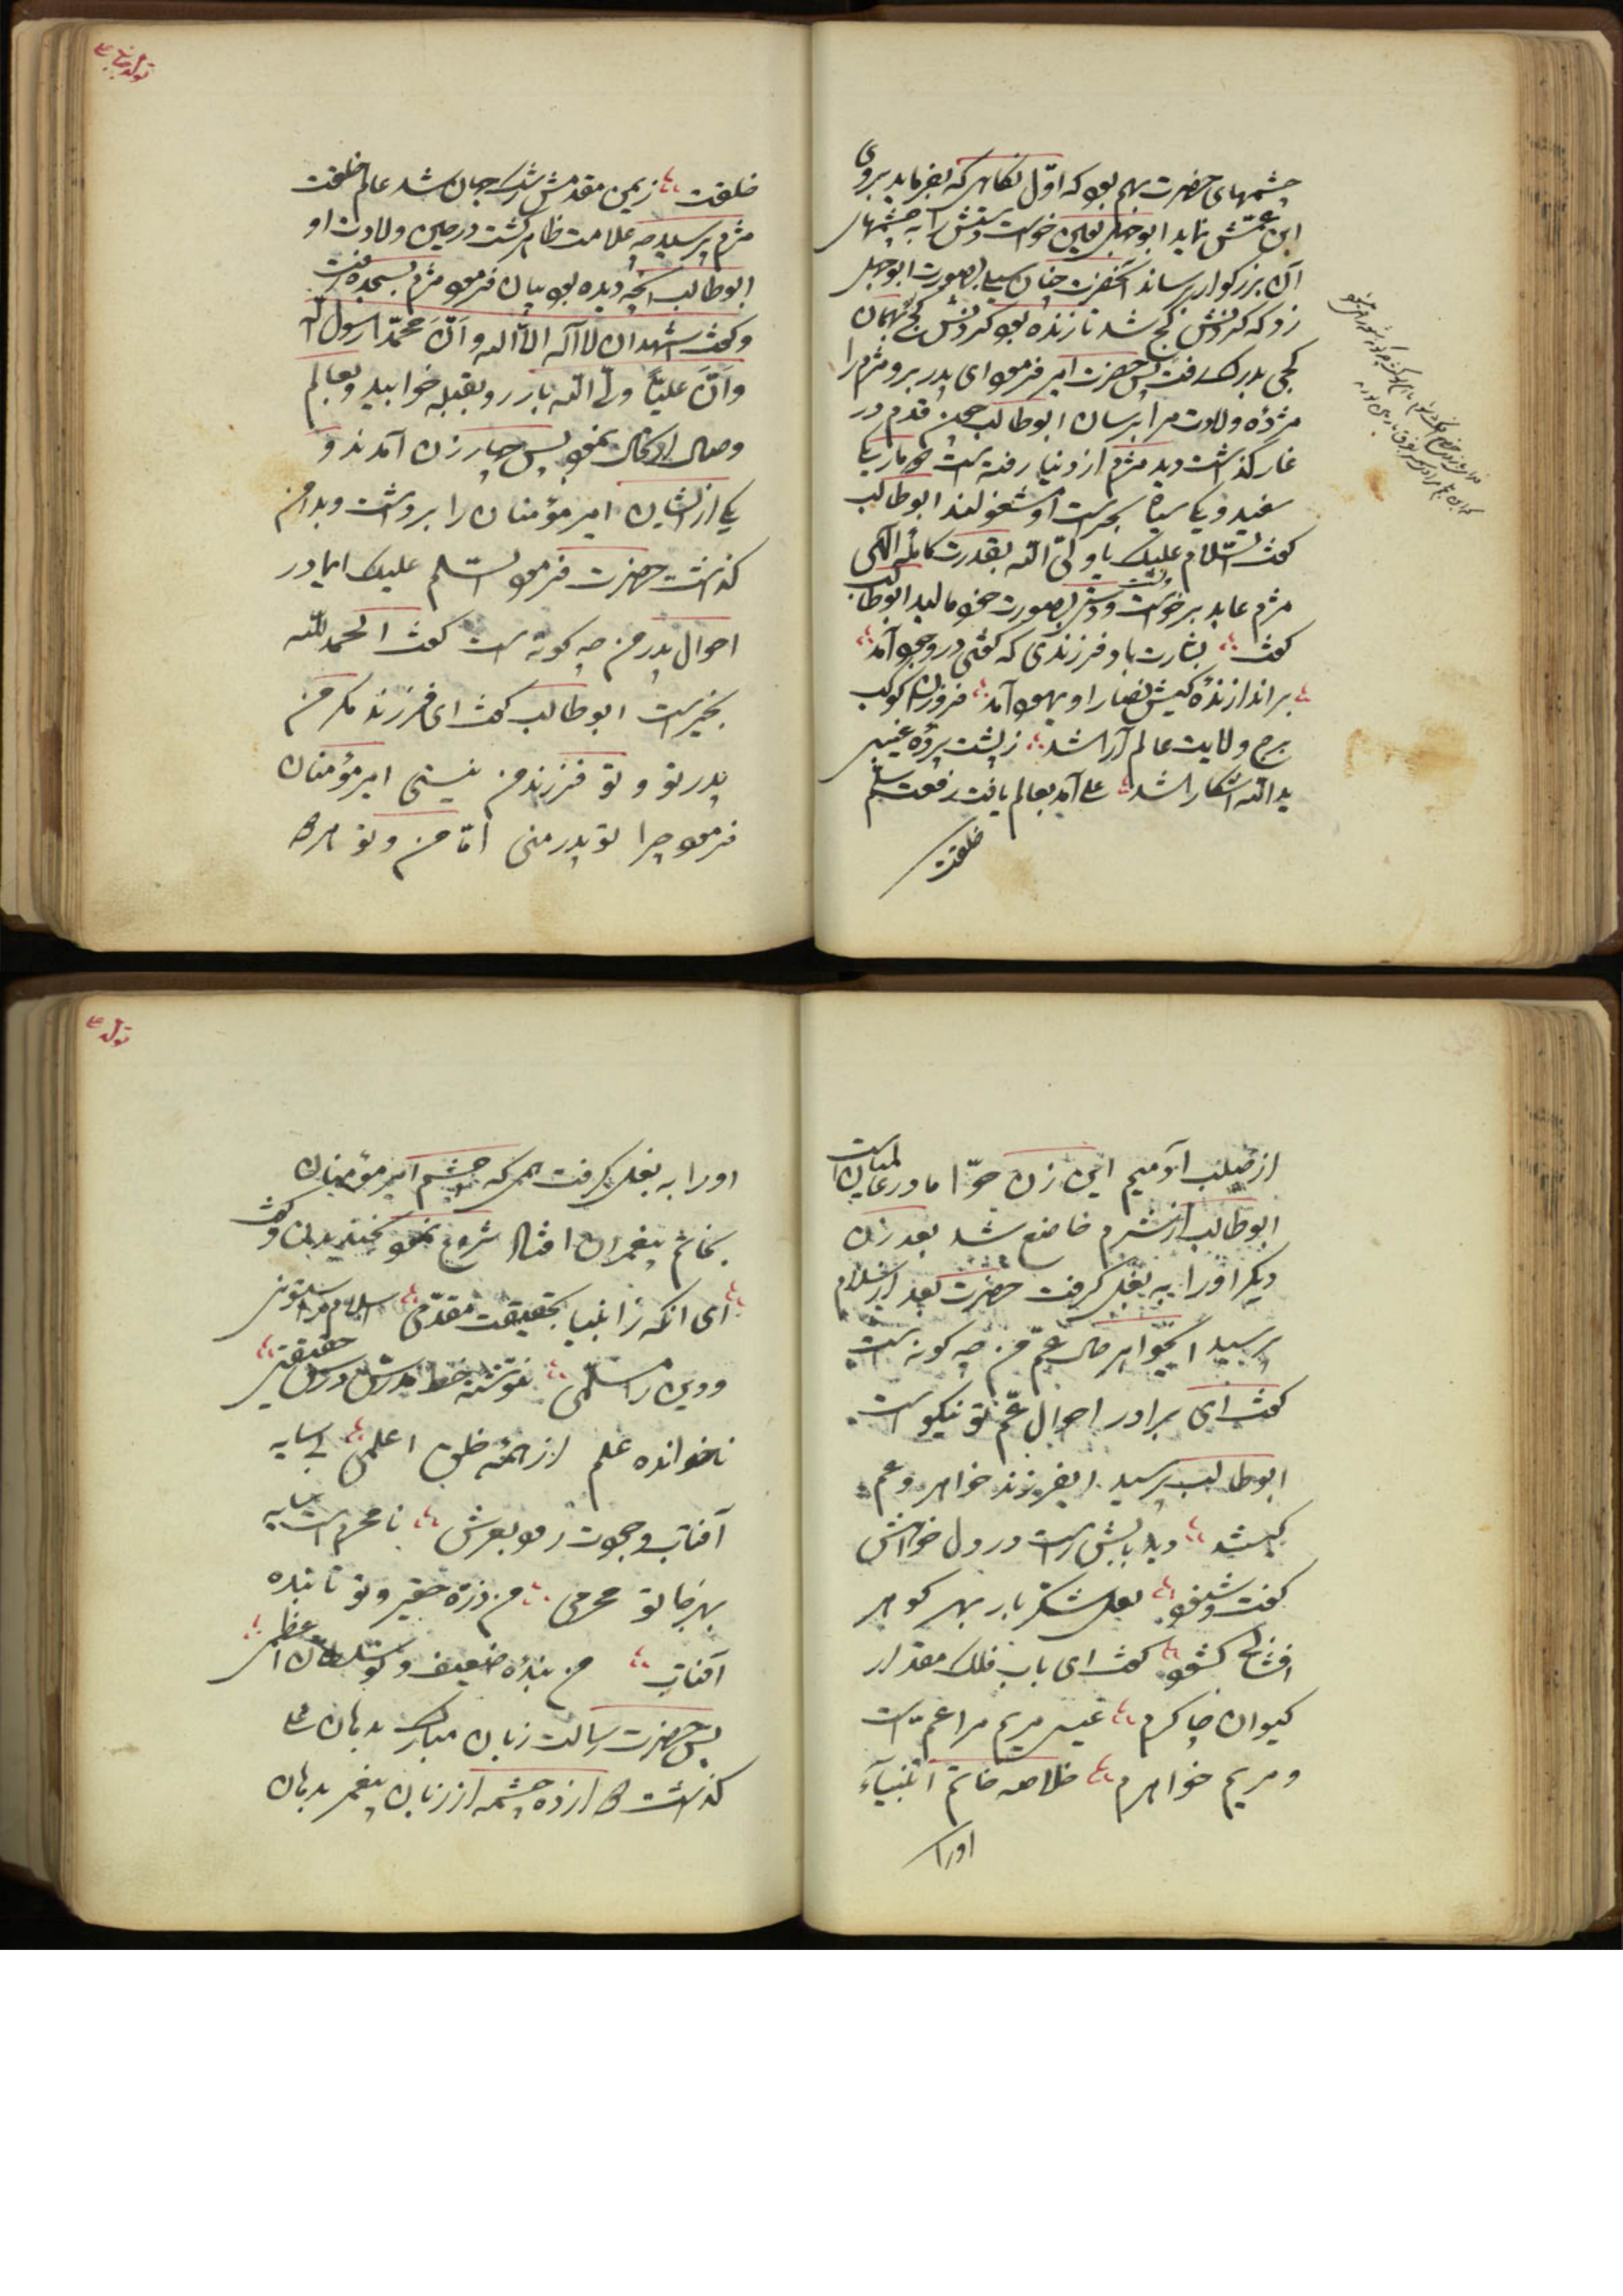 چشمهای حضرت بهم بود که اوّل نگاهی که بفرماید بروی
ابن عمّش نماید ابوجهل لعین خواست دستش را به چشمهای
آن بزرگوار برساند آنحضرت چنان سیلی بصورت ابوجهل
زد که گردنش کج شد تا زنده بود گردنش کج بهمان
کجی بدرک رفت پس حضرت امیر فرمود ای پدر برو مثرم را
مژدهٔ ولادت مرا برسان ابوطالب چون قدم در
غار گذاشت دید مثرم از دنیا رفته است دو مار یکی
سفید و یکی سیاه بحراست او مشغولند ابوطالب
گفت السّلام علیک یا ولیّ اللّه بقدرت کاملهٔ الهی
مثرم عابد برخواست و دست بصورت خود مالید ابوطالب
گفت بشارت باد فرزندی که گفتی در وجود آمد
براندازندهٔ کیش نصارا و یهود آمد فروزان کوکب
برج ولایت عالم آرا شد ز پشت پردهٔ غیبی
ید اللّه آشکارا شد علی آمد بعالم یافت رفعت
خلقت
تولد
خلقت زیمن مقدمش رشک جنان شد عالم خلقت
مثرم پرسید چه علامت ظاهر گشت در حین ولادت او
ابوطالب آنچه دیده بود بیان فرمود مثرم بسجده رفت
و گفت اشهد ان لا اله الّا اللّه و انّ محمّداً رسول اللّه
و انّ علیّاً ولیّ اللّه باز رو بقبله خوابید و بعالم
وصال ارتحال نمود پس چهار زن آمدند و
یکی از ایشان امیر مؤمنان را برداشت و بدامن
گذاشت حضرت فرمود السّلم علیک ایمادر
احوال پدر من چه گونه است گفت الحمد للّه
بخیر است ابوطالب گفت ای فرزند مگر من
پدر تو و تو فرزند من نیستی امیر مؤمنان
فرمود چرا تو پدر منی امّا من و تو هر دو
از صلب آدمیم این زن حوّا مادر عالمیان است
ابوطالب از شرم خاضع شد بعد زن
دیگر او را به بغل گرفت حضرت بعد از سلام
پرسید ایخواهر حال عمّ من چه گونه است
گفت ای برادر احوال عمّ تو نیکو است
ابوطالب پرسید ایفرزند خواهر و عم
کیشد دید بابش راست در دل خواهش
گفت و شنود لعل شکر بار بهر گوهر
افشانی گشود گفت ای باب فلک مقدار
کیوان چاکرم عیسی مریم مرا عمّ است
و مریم خواهرم خلاصه خاتم انبیآء
اورا
تولد
اورا به بغل گرفت همی که چشم امیر مؤمنان
بخاتم پیغمبران افتاد شروع نمود بخندیدن و گفت
ای آنکه ز انبیا بحقیقت مقدّمی اسلام را
و دین را مسلّمی ننوشته خط مدرّس درس حقیقتی
ناخوانده علم از همهٔ خلق اعلمی بی سایه
آفتاب وجودت رود بعرش نامحرم است سایه
بهرجا تو محرمی من ذرّهٔ حقیر و تو تابنده
آفتاب من بندهٔ ضعیف و تو سلطان اعظمی
پس حضرت رسالت زبان مبارک بدهان علی
گذاشت دوازده چشمه از زبان پیغمبر بدهان